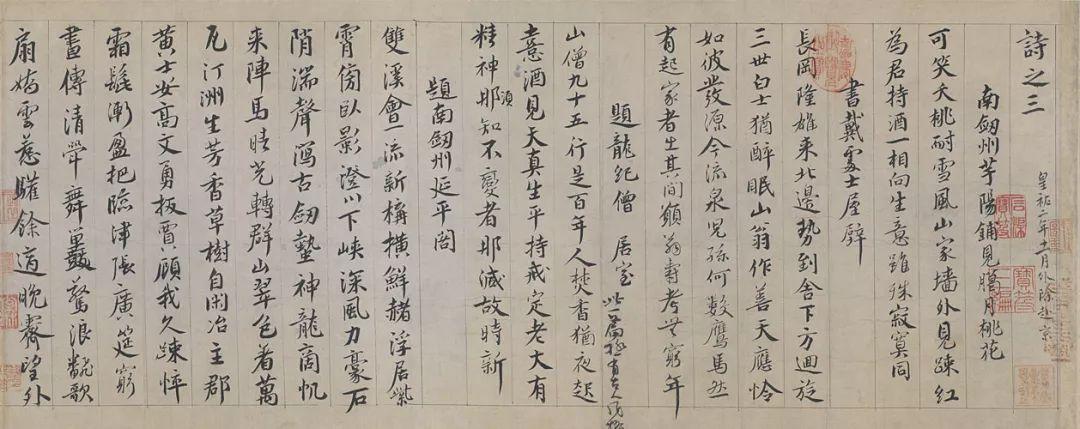 詩之三
皇祐二年十一月外除赴京
南劔州芋陽鋪見臘月桃花
可笑夭桃耐雪風山家墻外見踈紅
為君持酒一相向生意雖殊寂寞同
書戴處士屋壁
長岡隆雄来北邊勢到舍下方迴旋
三世白士猶醉眠山翁作善天應憐
如彼發源今流泉兒孫何數鷹馬然
有起家者生其間願翁壽考無窮年
題龍紀僧居室
此篇極有古人風格
山僧九十五行是百年人焚香猶夜起
憙酒見天真生平持戒定老大有
精神那須知不變者那減故時新
題南劔州延平閣
雙溪會一流新構橫鮮赭浮居紫
霄傍臥影澄川下峽深風力豪石
陗湍聲瀉古劔蟄神龍商帆
来陣馬晴光轉群山翠色着萬
瓦汀洲生芳香草樹自閑冶主郡
黄士安高文勇扳賈顧我久踈悴
霜髭漸盈把臨津張廣筵窮
晝傳清斝舞鼓驚浪翻歌
扇嬌雲惹驩餘適晚霽望外